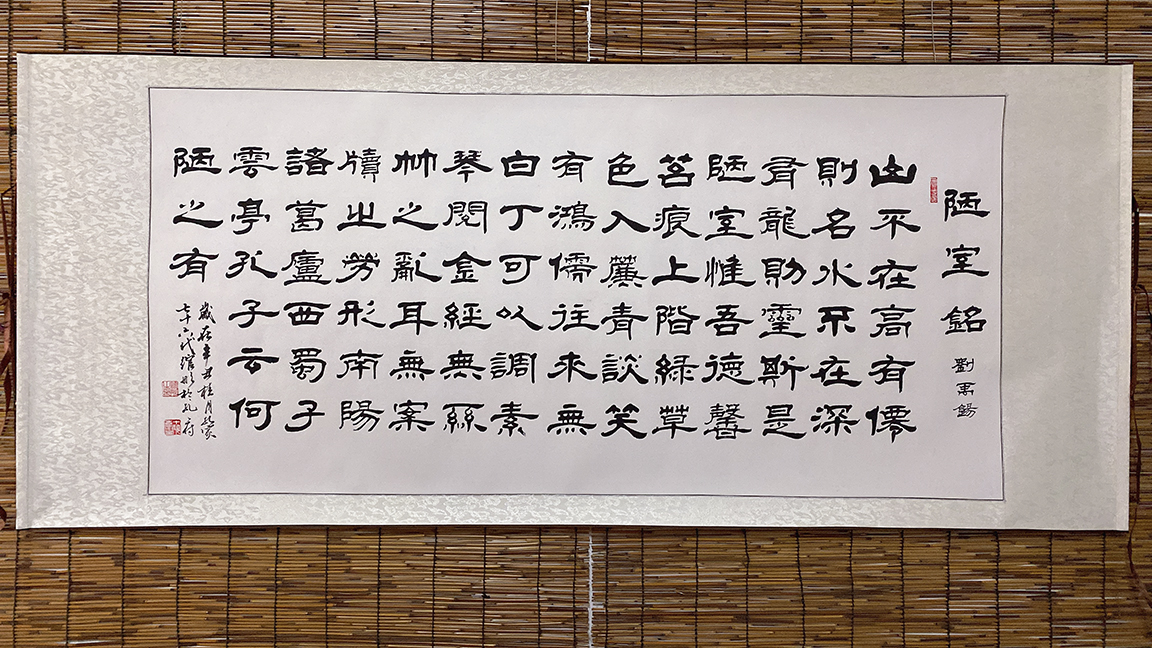 陋室銘 劉禹錫
山不在高有僊
則名水不在深
有龍則靈斯是
陋室惟吾德馨
苔痕上階綠草
色入簾青談笑
有鴻儒往來無
白丁可以調素
琴閱金經無絲
竹之亂耳無案
牘之勞形南陽
諸葛廬西蜀子
雲亭孔子云何
陋之有
歲在辛丑桂月
於孔府